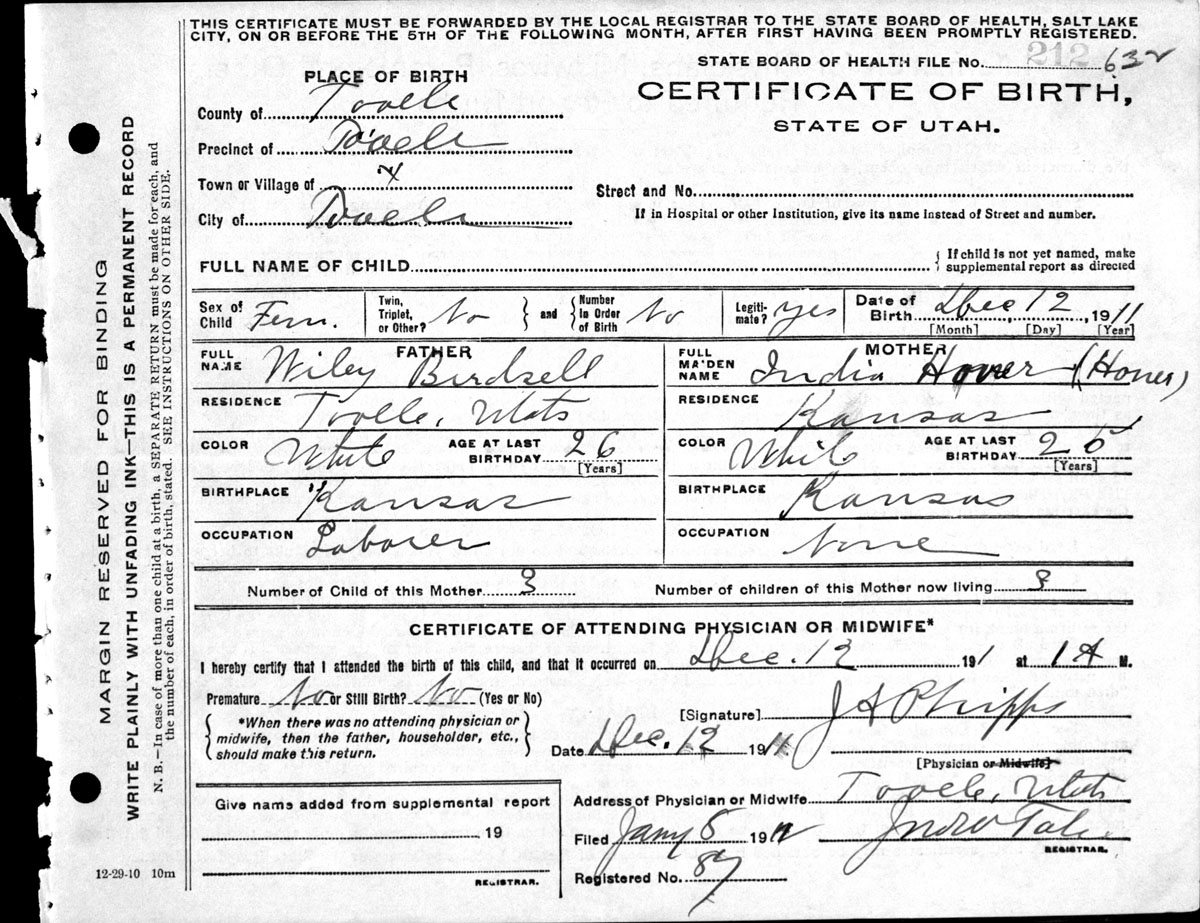 THIS CERTIFICATE MUST BE FORWARDED BY THE LOCAL REGISTRAR TO THE STATE BOARD OF HEALTH, SALT LAKE
CITY, ON OR BEFORE THE 5TH OF THE FOLLOWING MONTH, AFTER FIRST HAVING BEEN PROMPTLY REGISTERED.
212
STATE BOARD OF HEALTH FILE No. 632
PLACE OF BIRTH
CERTIFICATE OF BIRTH,
STATE OF UTAH.
County of Tooele
Precinct of Tooele
Town or Village of x
Street and No.
City of Tooele
If in Hospital or other Institution, give its name instead of Street and number.
FULL NAME OF CHILD
{ If child is not yet named, make
supplemental report as directed
Sex of Child Fem. Twin, Triplet, or Other? No } and { Number In Order of Birth No Legitimate? yes Date of Birth Dec 12, 1911
[Month] [Day] [Year]
FATHER
FULL NAME Wiley Birdsell
MOTHER
FULL MAIDEN NAME India Hover (Hover)
RESIDENCE Tooele, Utah
RESIDENCE Kansas
COLOR White AGE AT LAST BIRTHDAY 26 [Years]
COLOR White AGE AT LAST BIRTHDAY 25 [Years]
BIRTHPLACE Kansas
BIRTHPLACE Kansas
OCCUPATION Laborer
OCCUPATION None
Number of Child of this Mother 3 Number of children of this Mother now living 3
CERTIFICATE OF ATTENDING PHYSICIAN OR MIDWIFE*
I hereby certify that I attended the birth of this child, and that it occurred on Dec. 12 191 at 1 A M.
Premature No or Still Birth? No (Yes or No)
{ *When there was no attending physician or
midwife, then the father, householder, etc.,
should make this return. }
[Signature] J A Phipps
Date Dec. 12 1911
[Physician or Midwife]
Give name added from supplemental report
19
REGISTRAR.
Address of Physician or Midwife Tooele, Utah
Filed Jany 5 191
REGISTRAR.
Registered No. 87
12-29-10 10m
MARGIN RESERVED FOR BINDING
WRITE PLAINLY WITH UNFADING INK—THIS IS A PERMANENT RECORD
N. B.—In case of more than one child at a birth, a SEPARATE RETURN must be made for each, and
the number of each, in order of birth, stated. SEE INSTRUCTIONS ON OTHER SIDE.